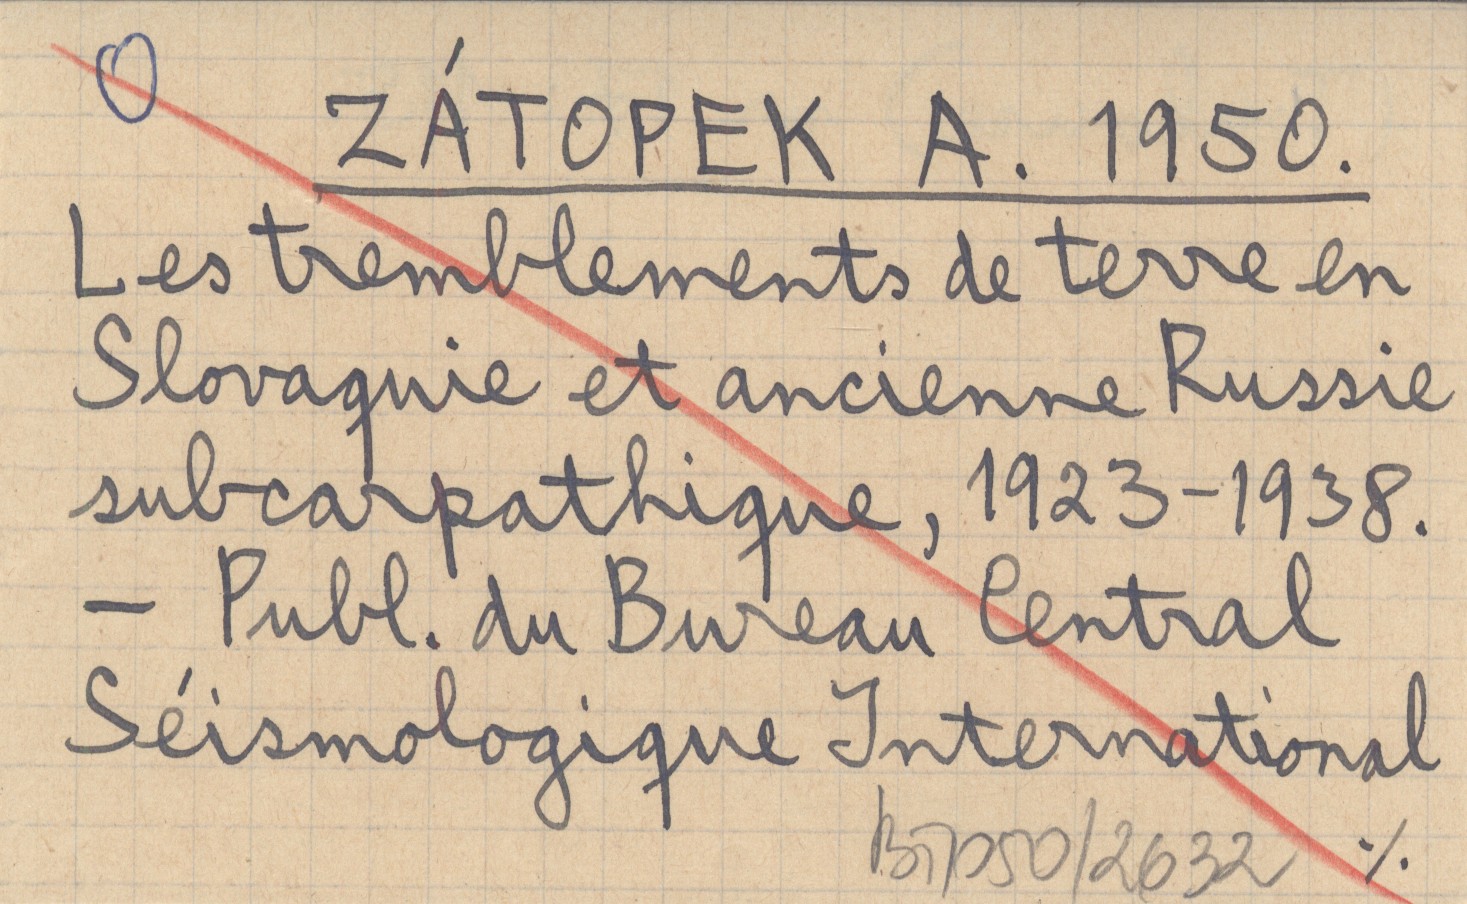 O
ZÁTOPEK A. 1950.
Les tremblements de terre en
Slovaquie et ancienne Russie
subcarpathique, 1923-1938.
— Publ. du Bureau Central
Séismologique International
./.